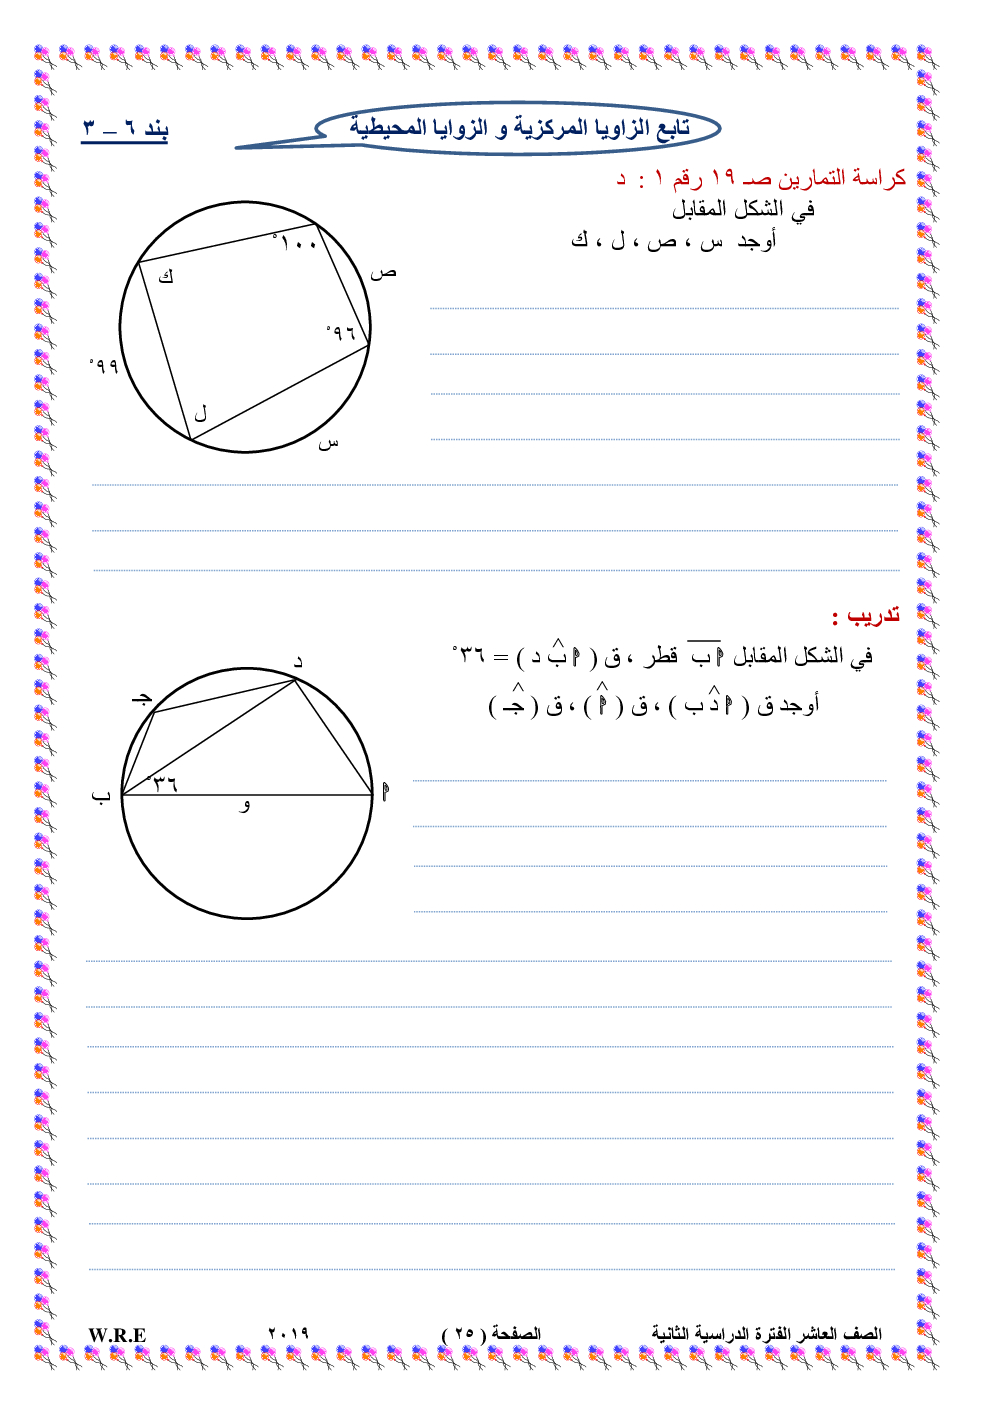 تابع الزاويا المركزية و الزوايا المحيطية
بند ٦ – ٣
كراسة التمارين صـ ١٩ رقم ١ : د
في الشكل المقابل
أوجد س ، ص ، ل ، ك
١٠٠°
ص
ك
٩٦°
٩٩°
ل
س
تدريب :
في الشكل المقابل أب قطر ، ق ( أ ب̂ د ) = ٣٦°
أوجد ق ( أ د̂ ب ) ، ق ( أ̂ ) ، ق ( جـ̂ )
د
جـ
٣٦°
ب
و
أ
الصف العاشر الفترة الدراسية الثانية الصفحة ( ٢٥ ) ٢٠١٩ W.R.E